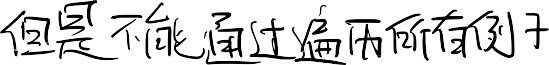 但是不能通过遍历所有例子